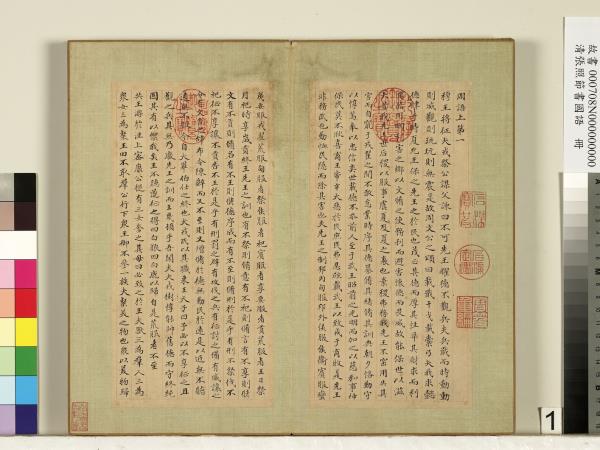 故書 000708N000000000
清張照節書國語 冊
周語上第一
穆王將征犬戎祭公謀父諫曰不可先王耀德不觀兵夫兵戢而時動動
則威觀則玩玩則無震是故周文公之頌曰載戢干戈載櫜弓矢我求懿
德肆于時夏允王保之先王之於民也茂正其德而厚其性阜其財求而利
其器用明利害之鄉以文脩之使務利而避害懷德而畏威故能保世以滋
大昔我先王世后稷以服事虞夏及夏之衰也棄稷弗務我先王不窋用失其
官而自竄于戎翟之間不敢怠業時序其德纂脩其緒脩其訓典朝夕恪勤守
以惇篤奉以忠信奕世載德不忝前人至于武王昭前之光明而加之以慈和事神
保民莫不欣喜商王帝辛大惡於民庶民弗忍欣戴武王以致戎于商牧是先王
非務武也勤恤民隱而除其害也夫先王之制邦内甸服邦外侯服侯衞賓服蠻
夷要服戎翟荒服甸服者祭侯服者祀賓服者享要服者貢荒服者王日祭
月祀時享歲貢終王先王之訓也有不祭則脩意有不祀則脩言有不享則脩
文有不貢則脩名有不王則脩德序成而有不至則脩刑於是乎有刑不祭伐不
祀征不享讓不貢告不王於是乎有刑罰之辟有攻伐之兵有征討之備有威讓之
令有文告之辭布令陳辭而又不至則又增脩於德無勤民於遠是以近無不聽
遠無不服今自大畢伯仕之終也犬戎氏以其職來王天子曰予必以不享征之且
觀之兵其無乃廢先王之訓而王幾頓乎吾聞夫犬戎樹惇能帥舊德而守終純
固其有以禦我矣王不聽遂征之得四白狼四白鹿以歸自是荒服者不至
共王游於涇上密康公從有三女奔之其母曰必致之於王夫獸三為羣人三為
衆女三為粲王田不取羣公行下衆王御不參一族夫粲美之物也衆以美物歸
1